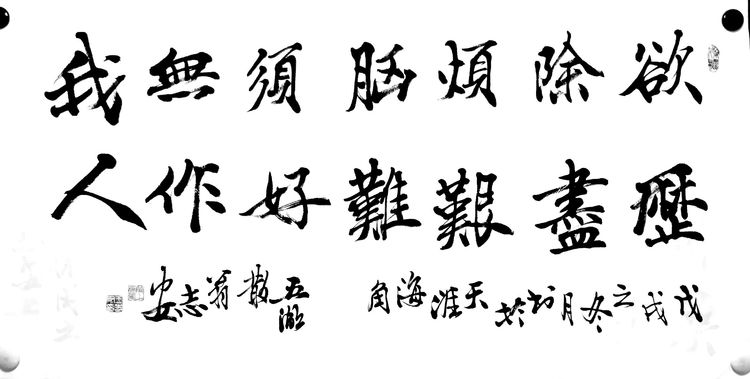 欲除煩腦須無我
歷盡艱難好作人
戊戌之冬月书於天涯海角 五湖散翁志